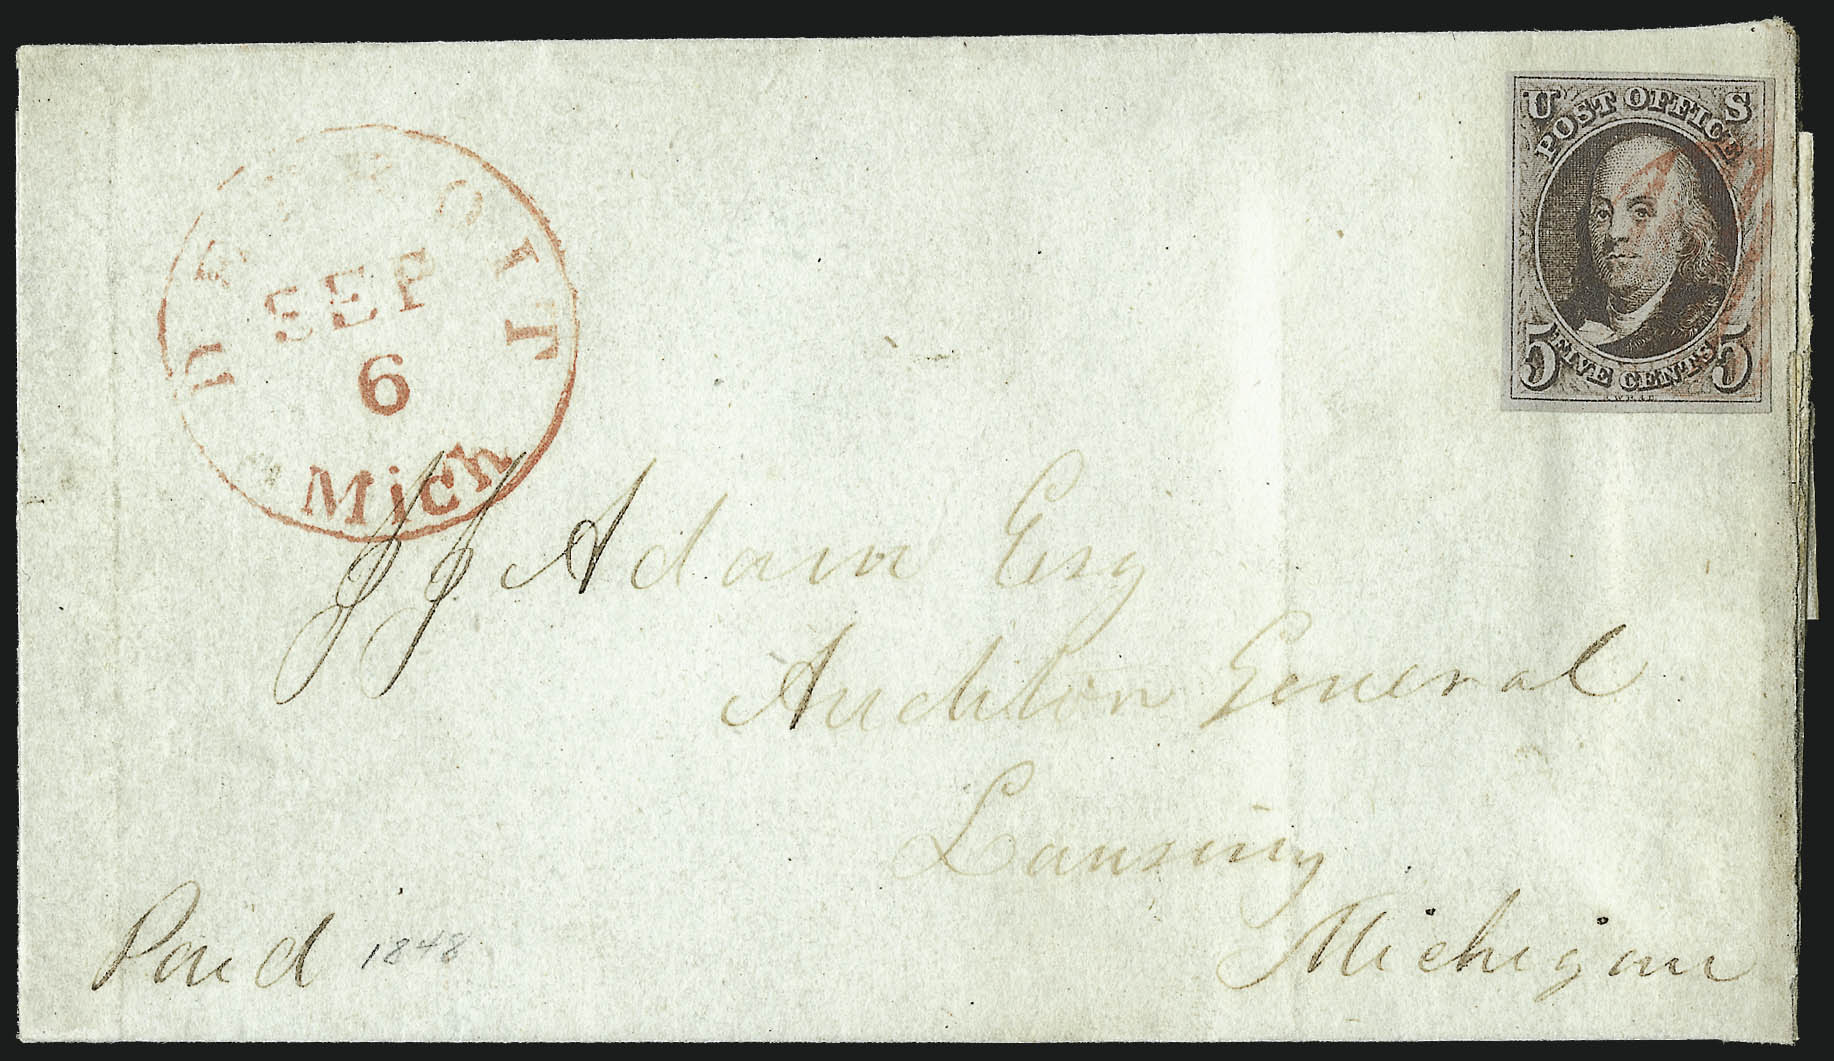 DETROIT
SEP
6
Mich
U S
POST OFFICE
5 FIVE CENTS 5
J J Adam Esq
Auditor General
Lansing
Michigan
Paid 1848